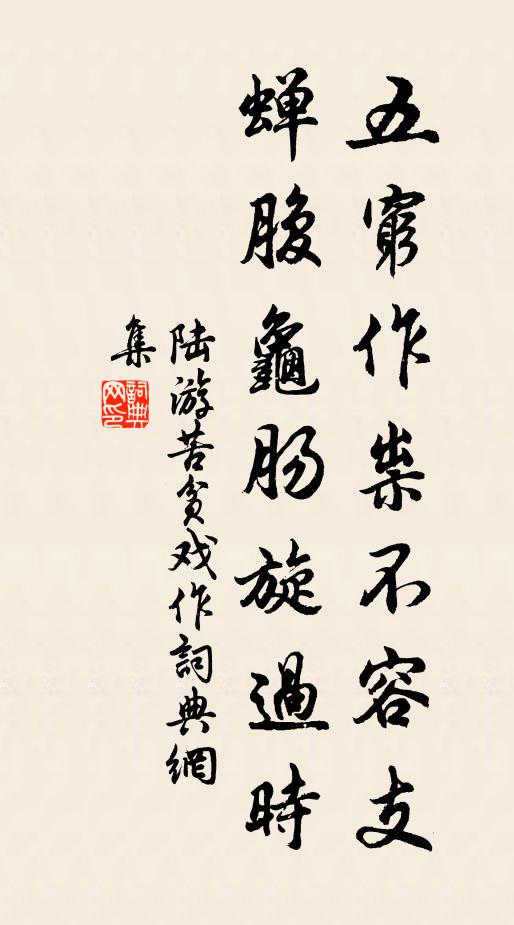 五穷作祟不容支
蝉腹龟肠旋過時
陆游苦贫戏作詞典網
集
詞典
网印